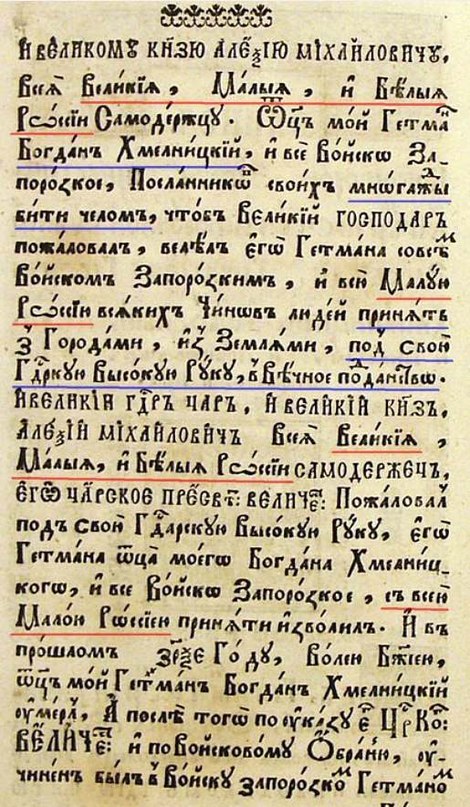 И҆ вели́кому кн҃зю Алеѯі́ю Міха́йловичу,
Всеѧ̀ Вели́кіѧ, Ма́лыѧ, и҆ Бѣ́лыѧ
Рѡссі́и Самоде́ржцу. Ѿц҃ъ мо́й Гетма́нъ
Богда́нъ Хмелни́цкїй, и҆ всѐ Во́йскѡ За-
поро́зкое, Посла́нникѡвъ свои́хъ мнѡга́жды
би́ти чело́мъ, что́бъ Вели́кїй Господа́ръ
пожа́ловалъ, велѣ́лъ є҆гѡ̀ Гетма́на совсѣ́мъ
Во́йскомъ Запоро́зкимъ, и҆ все́ю Ма́лую
Рѡссі́ю всѧ́кихъ Чи́нѡвъ люде́й принѧ́ть
з Города́ми, и҆ з Землѧ́ми, под свою̀
Гд҃рскую Высо́кую Ру́ку, в Вѣ́чное по́дданство.
И҆ вели́кїй гд҃рь ца́ръ, и҆ вели́кїй кн҃зь,
Алеѯі́й Міха́йловичъ Всеѧ̀ Вели́кіѧ,
Ма́лыѧ, и҆ Бѣ́лыѧ Рѡссі́и самоде́ржечъ,
є҆гѡ̀ ца́рское пресвѣт: величе: Пожа́ловалъ
подъ свою̀ Гд҃арскую Высо́кую Ру́ку, є҆гѡ̀
Гетма́на ѿц҃а моегѡ̀ Богда́на Хмелни́ц-
когѡ, и҆ все Во́йскѡ Запоро́зкое, съ все́ю
Ма́лою Рѡссі́ею принѧ́ти и҆зво́лилъ. И҆ въ
про́шломъ зрѯе Го́ду, во́лею Бж҃іею,
ѿц҃ъ мо́й Гетма́нъ Богда́нъ Хмелни́цкїй
ѹ҆ме́рлъ, А҆ по́слѣ тогѡ̀ по ѹ҆ка́зу є҆ Цр҃ко:
Вели́че: и҆ по Войсковому Ѡ҆бра́ню, ѹ҆-
чине́н бы́лъ в Во́йску запоро́зкомъ Гетма́номъ